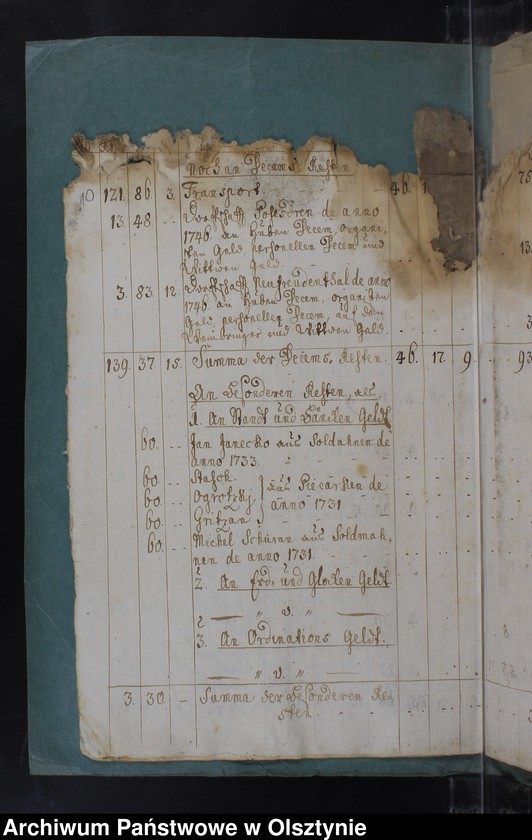 Noch an Decems Resten
10 121. 86. 3. Transport. 46. 1
13. 48. Dorfschaft de anno
1746. an Huben Decem, organi-
sten Geld personellen Decem und
Wittwen Geld.
3. 83. 12. Dorfschaft Neufreudenthal de anno
1746 an Huben Decem, organisten
Geld personellen Decem, auf den
und Wittwen Geld.
139. 37. 15. Summa der Decems, Resten. 46. 17. 9.
An besonderen Resten, als
1. An Standt und Bäncken Geldt
60. Jan Janecko aus Soldahnen de
anno 1733.
60. Stasch
60. Ogrotzky aus Piecarken de
anno 1731.
60. Gritzan
60. Michel Schüran aus Soldmah-
nen de anno 1731.
2. An Erd- und Glocken Geldt
" v. "
3. An Ordinations Geldt.
" v. "
3. 30. Summa der besonderen Re-
sten.
75
13.
3
93
8
Archiwum Państwowe w Olsztynie